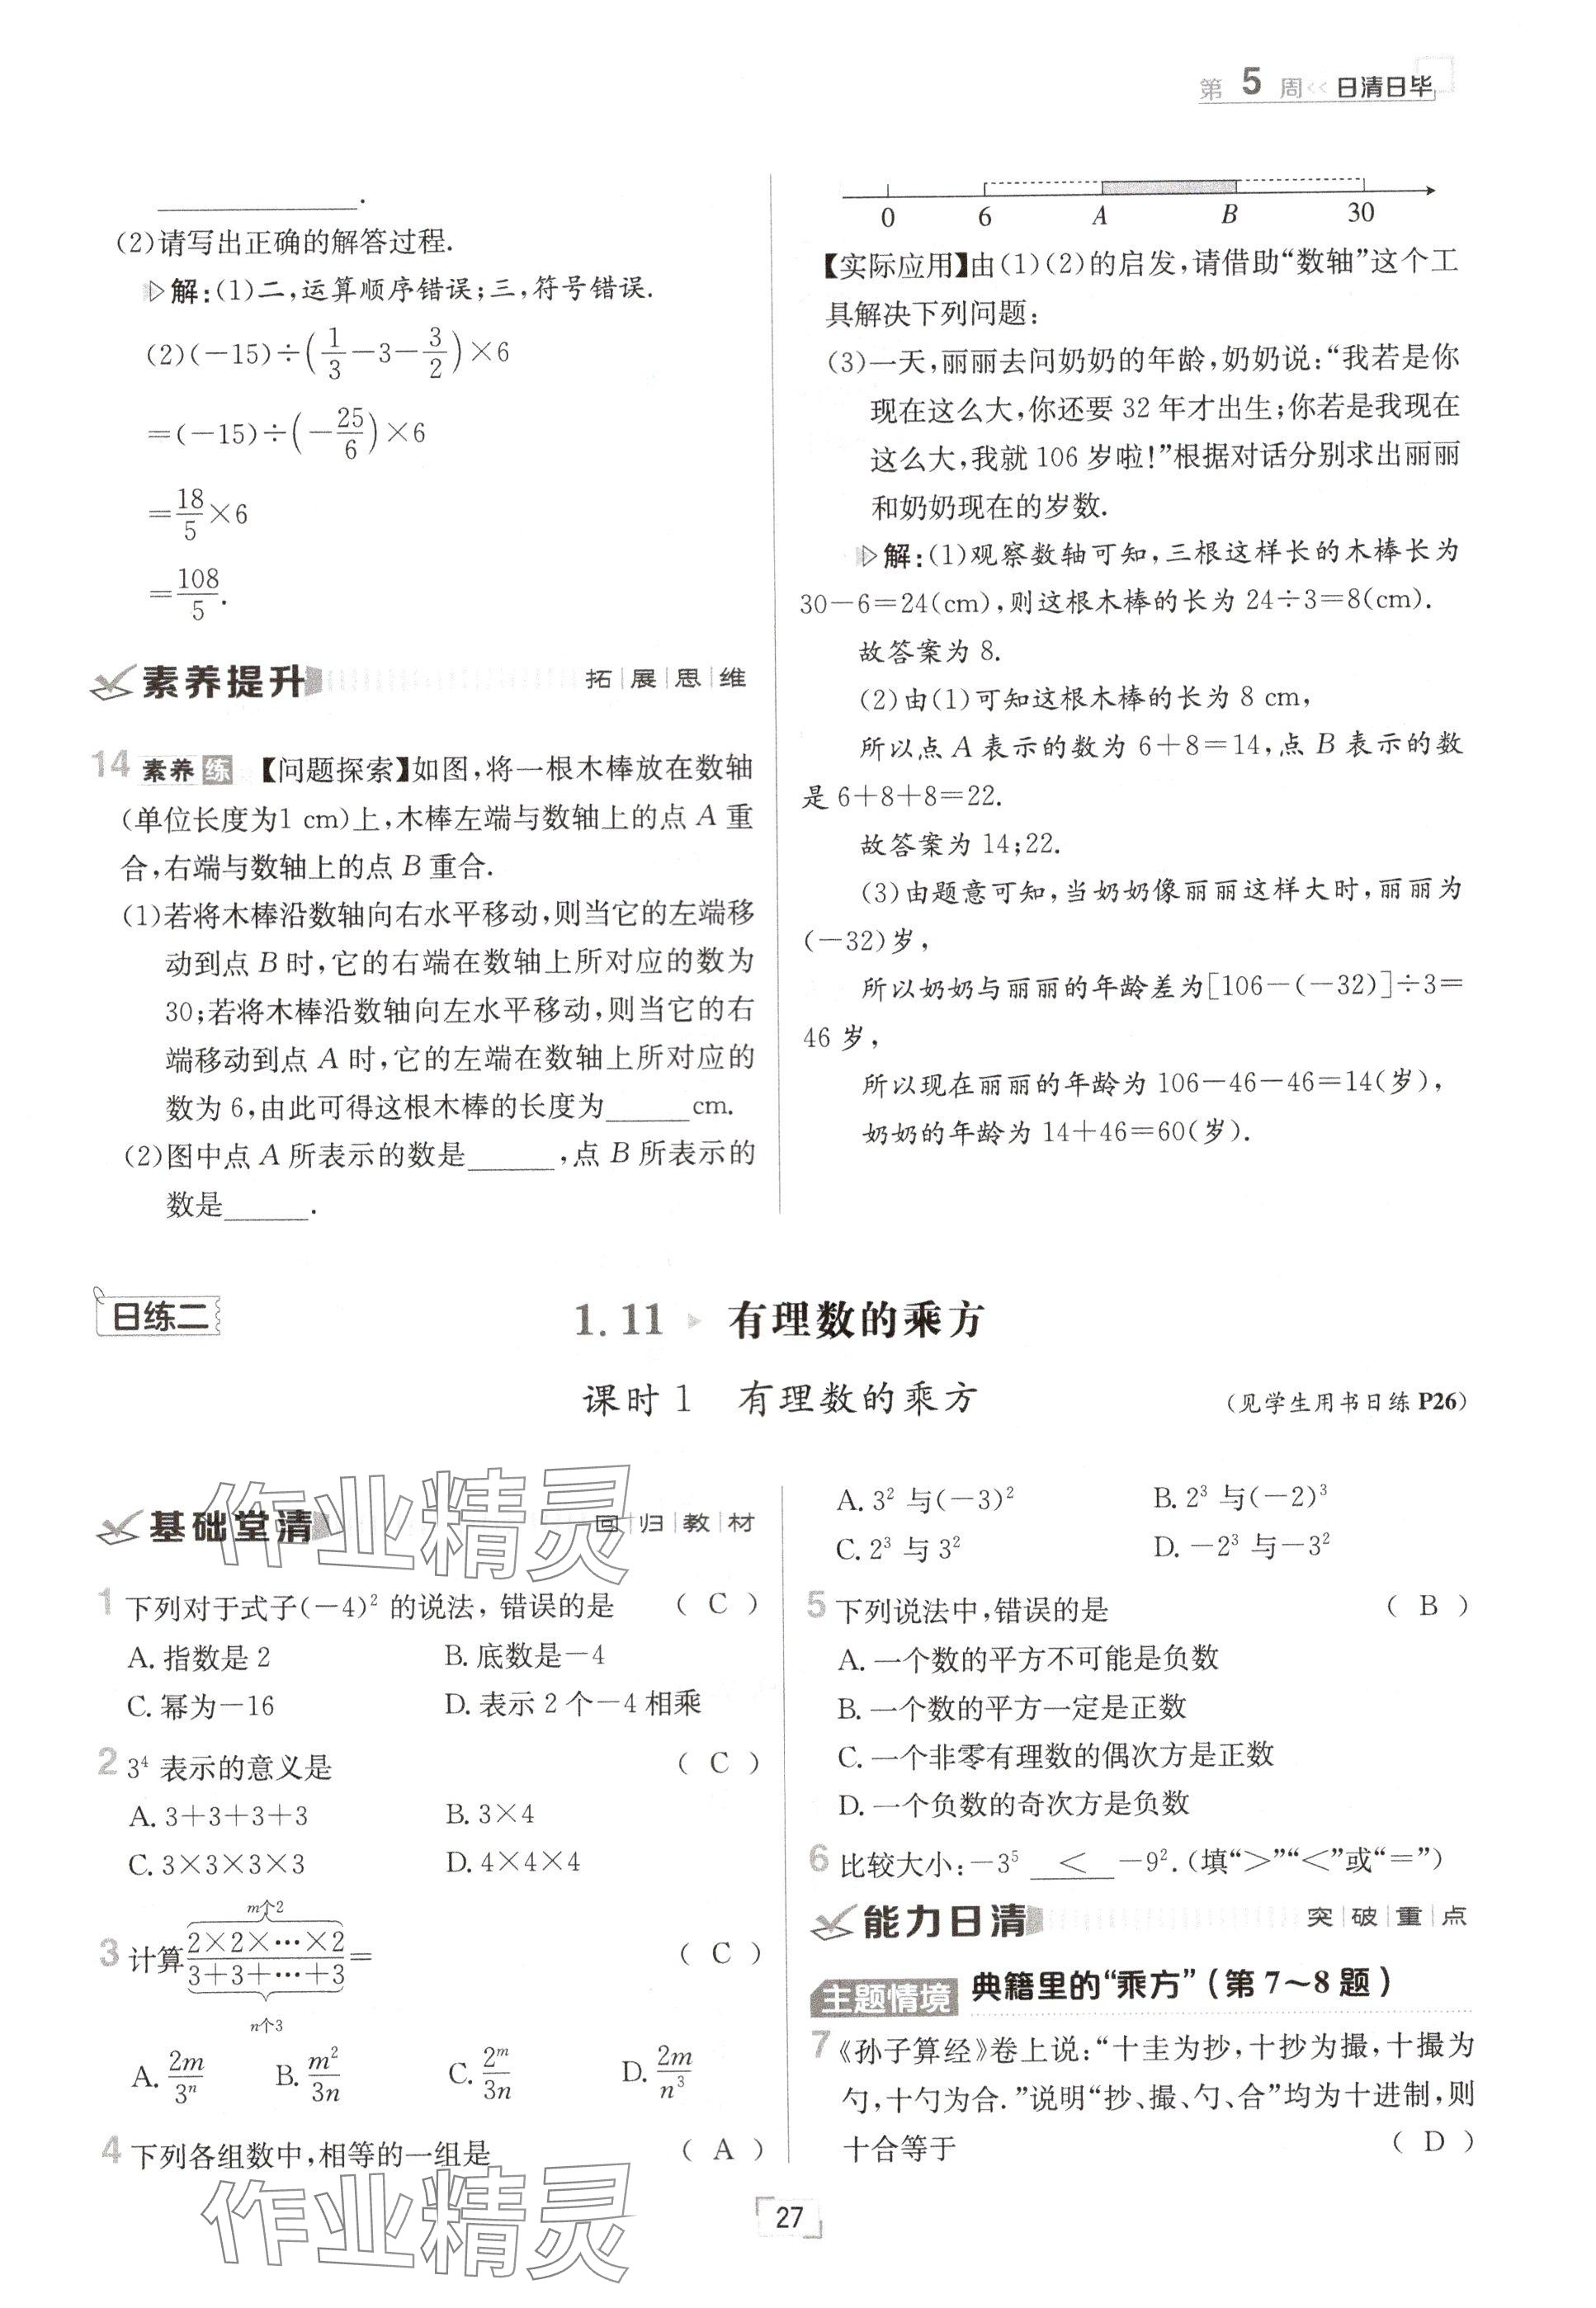 第 5 周<< 日清日毕
____________.
(2)请写出正确的解答过程.
▷解:(1)二,运算顺序错误;三,符号错误.
(2)(-15)÷(1/3-3-3/2)×6
=(-15)÷(-25/6)×6
=18/5×6
=108/5.
素养提升 拓|展|思|维
14 素养 练 【问题探索】如图,将一根木棒放在数轴
(单位长度为1 cm)上,木棒左端与数轴上的点 A 重
合,右端与数轴上的点 B 重合.
(1)若将木棒沿数轴向右水平移动,则当它的左端移
动到点 B 时,它的右端在数轴上所对应的数为
30;若将木棒沿数轴向左水平移动,则当它的右
端移动到点 A 时,它的左端在数轴上所对应的
数为 6,由此可得这根木棒的长度为______cm.
(2)图中点 A 所表示的数是______,点 B 所表示的
数是______.
0 6 A B 30
【实际应用】由(1)(2)的启发,请借助“数轴”这个工
具解决下列问题:
(3)一天,丽丽去问奶奶的年龄,奶奶说:“我若是你
现在这么大,你还要 32 年才出生;你若是我现在
这么大,我就 106 岁啦!”根据对话分别求出丽丽
和奶奶现在的岁数.
▷解:(1)观察数轴可知,三根这样长的木棒长为
30-6=24(cm),则这根木棒的长为 24÷3=8(cm).
故答案为 8.
(2)由(1)可知这根木棒的长为 8 cm,
所以点 A 表示的数为 6+8=14,点 B 表示的数
是 6+8+8=22.
故答案为 14;22.
(3)由题意可知,当奶奶像丽丽这样大时,丽丽为
(-32)岁,
所以奶奶与丽丽的年龄差为[106-(-32)]÷3=
46 岁,
所以现在丽丽的年龄为 106-46-46=14(岁),
奶奶的年龄为 14+46=60(岁).
日练二
1.11 有理数的乘方
课时 1 有理数的乘方 (见学生用书日练 P26)
基础堂清 回|归|教|材
1 下列对于式子(-4)² 的说法, 错误的是 ( C )
A. 指数是 2 B. 底数是-4
C. 幂为-16 D. 表示 2 个-4 相乘
2 3⁴ 表示的意义是 ( C )
A. 3+3+3+3 B. 3×4
C. 3×3×3×3 D. 4×4×4
m个2
3 计算 2×2×⋯×2/3+3+⋯+3= ( C )
n个3
A. 2m/3ⁿ B. m²/3n C. 2ᵐ/3n D. 2m/n³
4 下列各组数中,相等的一组是 ( A )
A. 3² 与(-3)² B. 2³ 与(-2)³
C. 2³ 与 3² D. -2³ 与-3²
5 下列说法中,错误的是 ( B )
A. 一个数的平方不可能是负数
B. 一个数的平方一定是正数
C. 一个非零有理数的偶次方是正数
D. 一个负数的奇次方是负数
6 比较大小:-3⁵ < -9².(填“>”“<”或“=”)
能力日清 突|破|重|点
主题情境 典籍里的“乘方”(第 7~8 题)
7 《孙子算经》卷上说:“十圭为抄,十抄为撮,十撮为
勺,十勺为合.”说明“抄、撮、勺、合”均为十进制,则
十合等于 ( D )
27
作业精灵
作业精灵